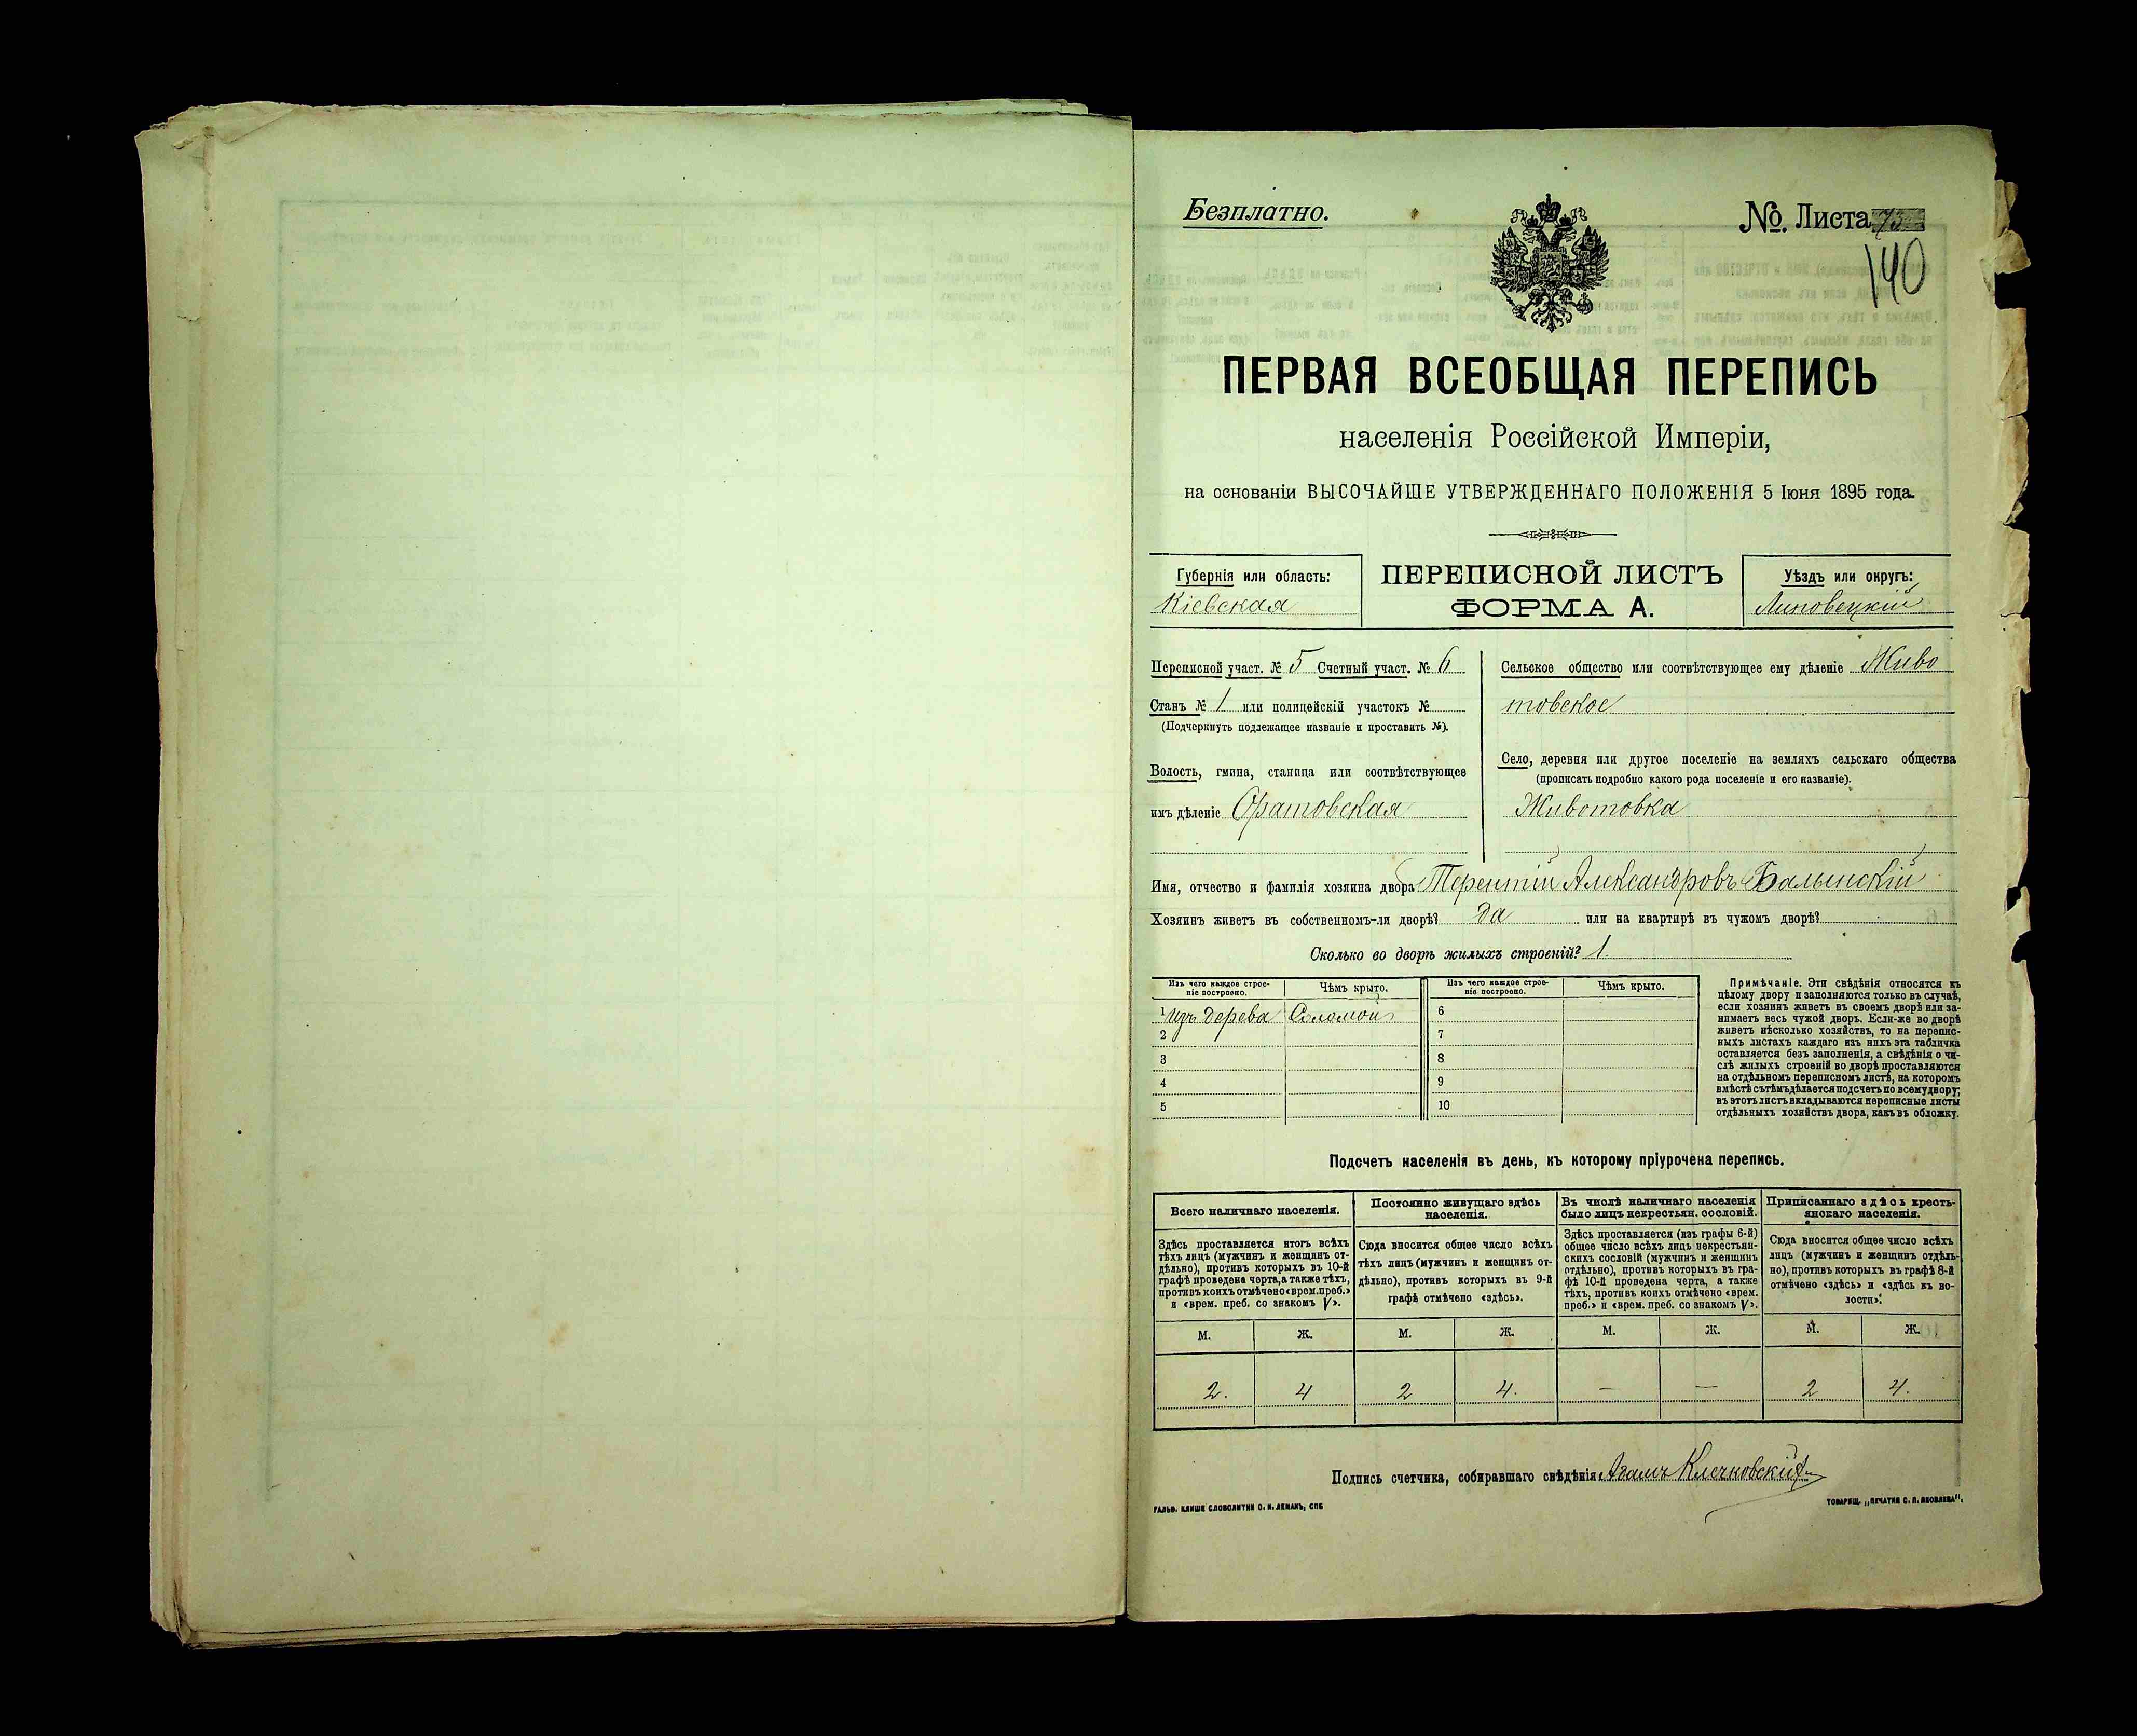 Безплатно.
№. Листа 73
140
ПЕРВАЯ ВСЕОБЩАЯ ПЕРЕПИСЬ
населенія Россійской Имперіи,
на основаніи ВЫСОЧАЙШЕ УТВЕРЖДЕННАГО ПОЛОЖЕНІЯ 5 Іюня 1895 года.
Губернія или область:
Кіевская
ПЕРЕПИСНОЙ ЛИСТЪ
ФОРМА А.
Уѣздъ или округъ:
Липовецкій
Переписной участ. № 5 Счетный участ. № 6
Станъ № 1 или полицейскій участокъ №
(Подчеркнуть подлежащее названіе и проставить №).
Волость, гмина, станица или соотвѣтствующее
имъ дѣленіе Оратовская
Сельское общество или соотвѣтствующее ему дѣленіе Живо
товское
Село, деревня или другое поселеніе на земляхъ сельскаго общества
(прописать подробно какого рода поселеніе и его названіе).
Животовка
Имя, отчество и фамилія хозяина двора Терентій Александровъ Балынскій
Хозяинъ живетъ въ собственномъ-ли дворѣ? да или на квартирѣ въ чужомъ дворѣ?
Сколько во дворѣ жилыхъ строеній? 1.
Изъ чего каждое строе-
ніе построено.
Чѣмъ крыто.
Изъ чего каждое строе-
ніе построено.
Чѣмъ крыто.
1 Изъ дерева Соломой 6
2 7
3 8
4 9
5 10
Примѣчаніе. Эти свѣдѣнія относятся къ
цѣлому двору и заполняются только въ случаѣ,
если хозяинъ живетъ въ своемъ дворѣ или за-
нимаетъ весь чужой дворъ. Если-же во дворѣ
живетъ нѣсколько хозяйствъ, то на перепис-
ныхъ листахъ каждаго изъ нихъ эта табличка
оставляется безъ заполненія, а свѣдѣнія о чи-
слѣ жилыхъ строеній во дворѣ проставляются
на отдѣльномъ переписномъ листѣ, на которомъ
вмѣстѣ съ тѣмъ дѣлается подсчетъ по всему двору;
въ этотъ листъ вкладываются переписные листы
отдѣльныхъ хозяйствъ двора, какъ въ обложку.
Подсчетъ населенія въ день, къ которому пріурочена перепись.
Всего наличнаго населенія.
Здѣсь проставляется итогъ всѣхъ
тѣхъ лицъ (мужчинъ и женщинъ от-
дѣльно), противъ которыхъ въ 10-й
графѣ проведена черта, а также тѣхъ,
противъ коихъ отмѣчено «врем. преб.»
и «врем. преб. со знакомъ V».
Постоянно живущаго здѣсь
населенія.
Сюда вносится общее число всѣхъ
тѣхъ лицъ (мужчинъ и женщинъ от-
дѣльно), противъ которыхъ въ 9-й
графѣ отмѣчено «здѣсь».
Въ числѣ наличнаго населенія
было лицъ некрестьян. сословій.
Здѣсь проставляется (изъ графы 6-й)
общее число всѣхъ лицъ некрестьян-
скихъ сословій (мужчинъ и женщинъ
отдѣльно), противъ которыхъ въ гра-
фѣ 10-й проведена черта, а также
тѣхъ, противъ коихъ отмѣчено «врем.
преб.» и «врем. преб. со знакомъ V».
Приписаннаго здѣсь кресть-
янскаго населенія.
Сюда вносится общее число всѣхъ
лицъ (мужчинъ и женщинъ отдѣль-
но), противъ которыхъ въ графѣ 8-й
отмѣчено «здѣсь» и «здѣсь къ во-
лости».
М. Ж. М. Ж. М. Ж. М. Ж.
2. 4 2 4. — — 2 4.
Подпись счетчика, собиравшаго свѣдѣнія: Адамъ Клечковскій
ГАЛЬВ. КЛИШЕ СЛОВОЛИТНИ О. И. ЛЕМАНЪ, СПБ
ТОВАРИЩ. „ПЕЧАТНЯ С. П. ЯКОВЛЕВА".